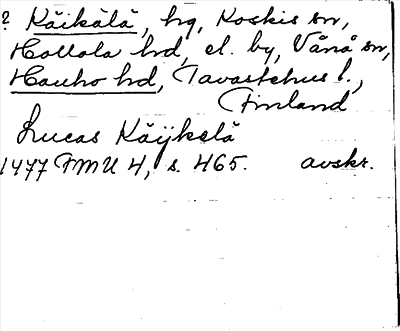 ? Käikälä, hg, Koskis sn,
Hollola hd, el. by, Vånå sn,
Hauho hd, Tavastehus l.,
Finland
Lucas Käÿkelä
1477 FMU 4, s. 465. avskr.